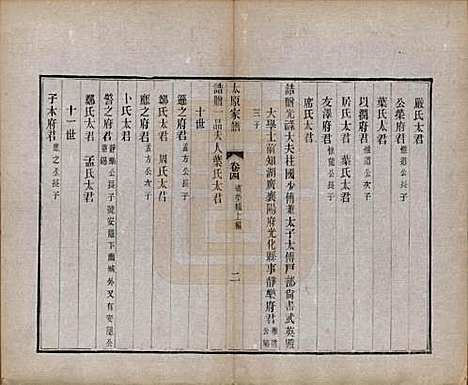 嚴氏太君
公榮府君 惟道公長子
葉氏太君
以潤府君 惟道公次子
居氏太君 葉氏太君
友澤府君 惟賢公長子
席氏太君
誥贈光祿大夫柱國少傅兼太子太傅戶部尚書武英殿
大學士前知湖廣襄陽府光化縣事靜樂府君 惟道公
三子
太原家譜 卷四 二
誥贈一品夫人葉氏太君
十世
遜之府君 孟方公長子
鄭氏太君 周氏太君
應之府君 孟方公次子
卜氏太君
靜樂公長子
鄭氏太君 孟氏太君
十一世
子木府君 應之公長子